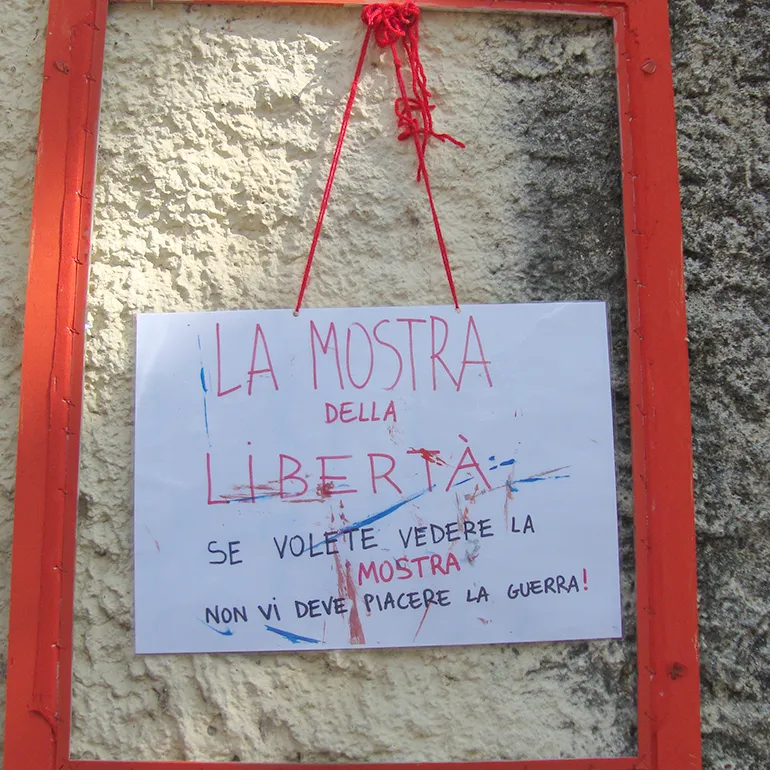 LA MOSTRA
DELLA
LiBERTÀ
SE VOLETE VEDERE LA
MOSTRA
NON Vi DEVE PIACERE LA GUERRA!